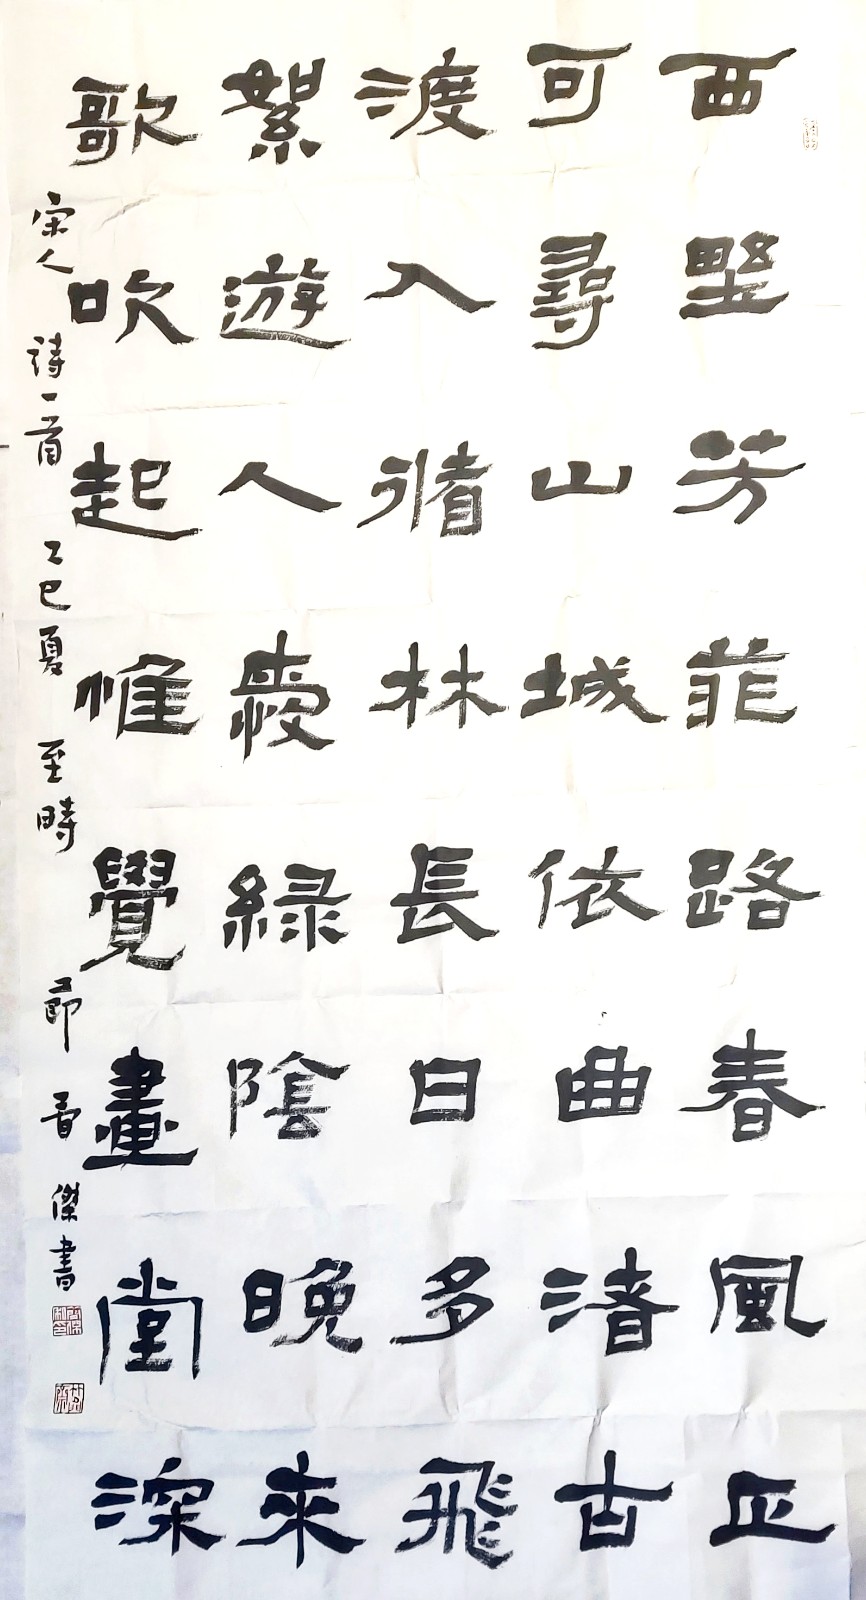 西野芳菲路春風正
可尋山城依曲渚古
渡入脩林長日多飛
絮遊人愛綠陰晚來
歌吹起惟覺畫堂深
宋人詩一首乙巳夏至時節傑書